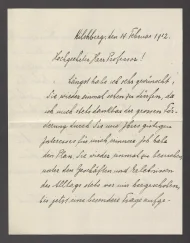 Kilchberg, den 14 Februar 1912.
Hochgeehrter Herr Professor!
Längst hatte ich sehr gewünscht,
Sie wieder einmal sehen zu dürfen, da
ich mich stets dankbar der grossen För-
derung durch Sie und Ihres gütigen
Interesses für mich erinnere. Ich hatte
den Plan Sie wieder einmal zu besuchen
unter den Geschäften und
des Alltags stets vor mir hergeschoben,
bis jetzt eine besondere Frage aufge-